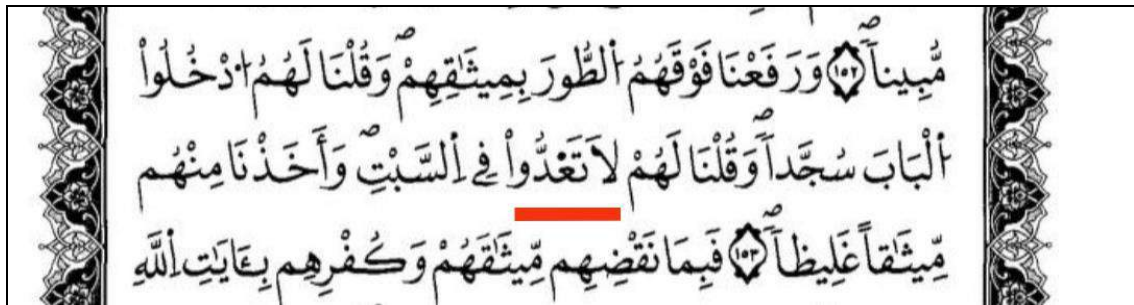 مُّبِيناٗۖ ١٥٢ وَرَفَعْنَا فَوْقَهُمُ اُ۬لطُّورَ بِمِيثَٰقِهِمْۖ وَقُلْنَا لَهُمُ اُ۟دْخُلُواْ
اُ۬لْبَابَ سُجَّداٗۖ وَقُلْنَا لَهُمْ لَا تَعْدُّواْ فِے اِ۬لسَّبْتِۖ وَأَخَذْنَا مِنْهُم
مِّيثَٰقاً غَلِيظاٗۖ ١٥٣ فَبِمَا نَقْضِهِم مِّيثَٰقَهُمْ وَكُفْرِهِم بِـَٔايَٰتِ اِ۬للَّهِ